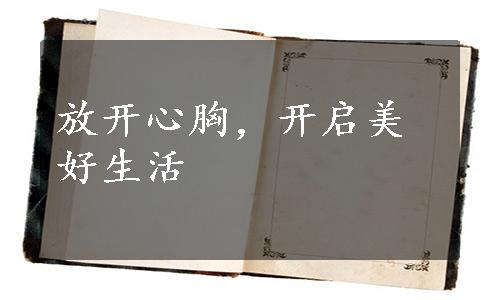 放开心胸，开启美
好生活